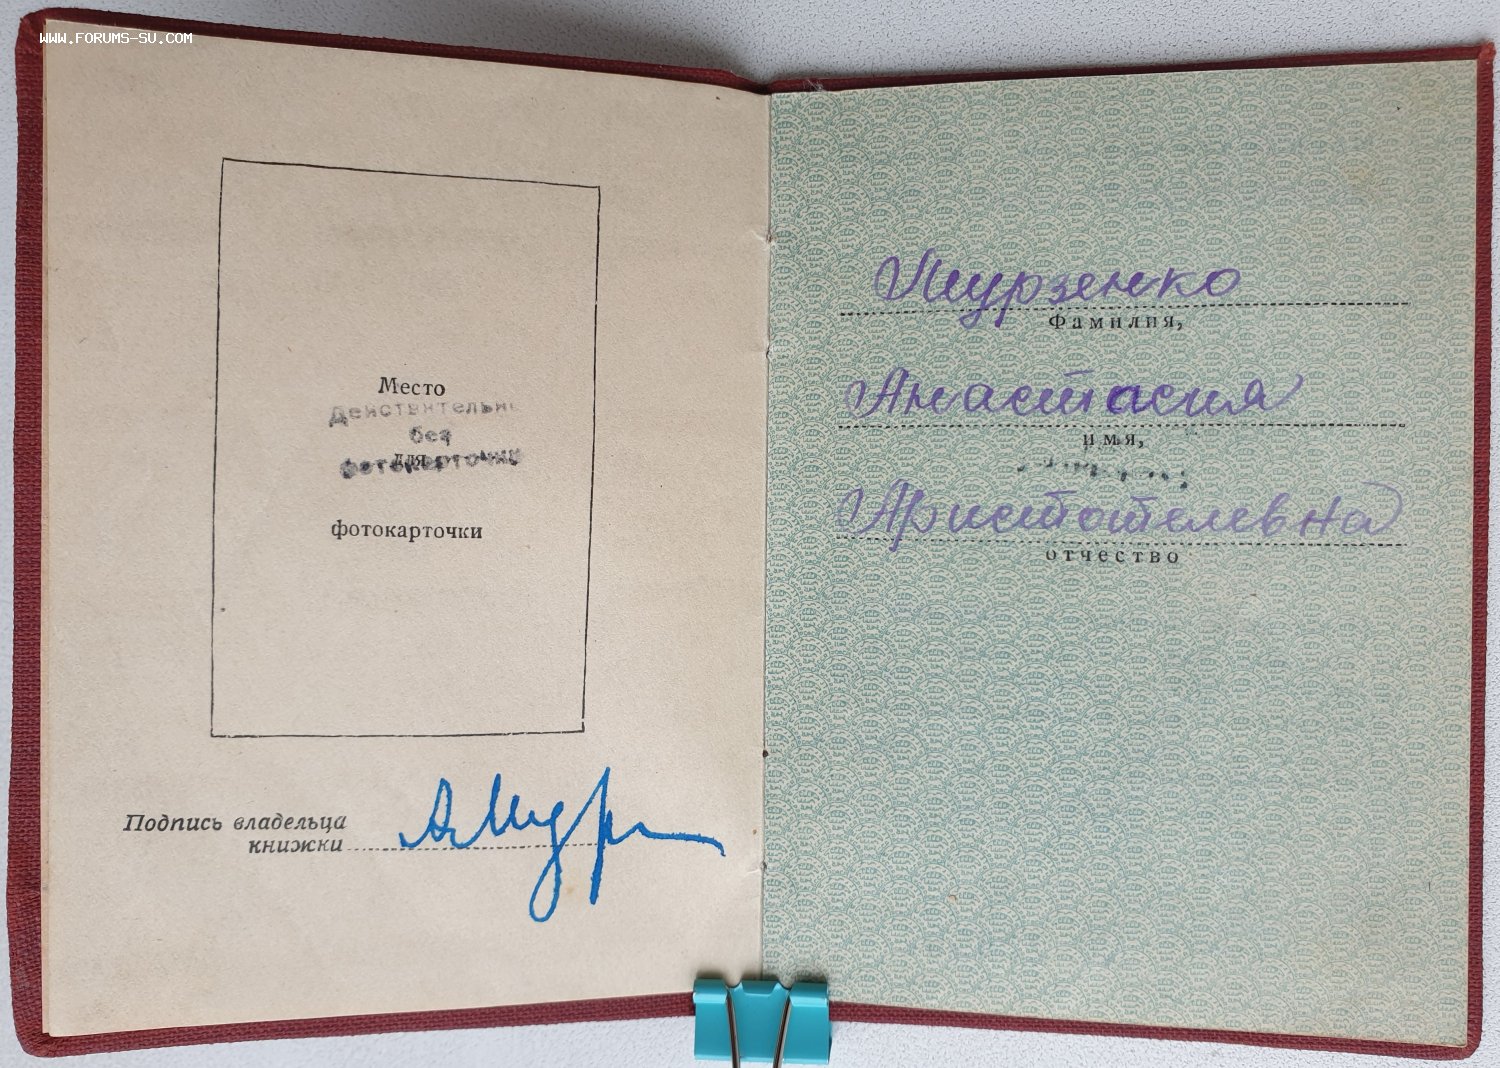 WWW.FORUMS-SU.COM
Место
Действительно
без
для
фотокарточки
фотокарточки
Подпись владельца
книжки
А Мур
Мурзенко
Фамилия,
Анастасия
имя,
Аристотелевна
отчество